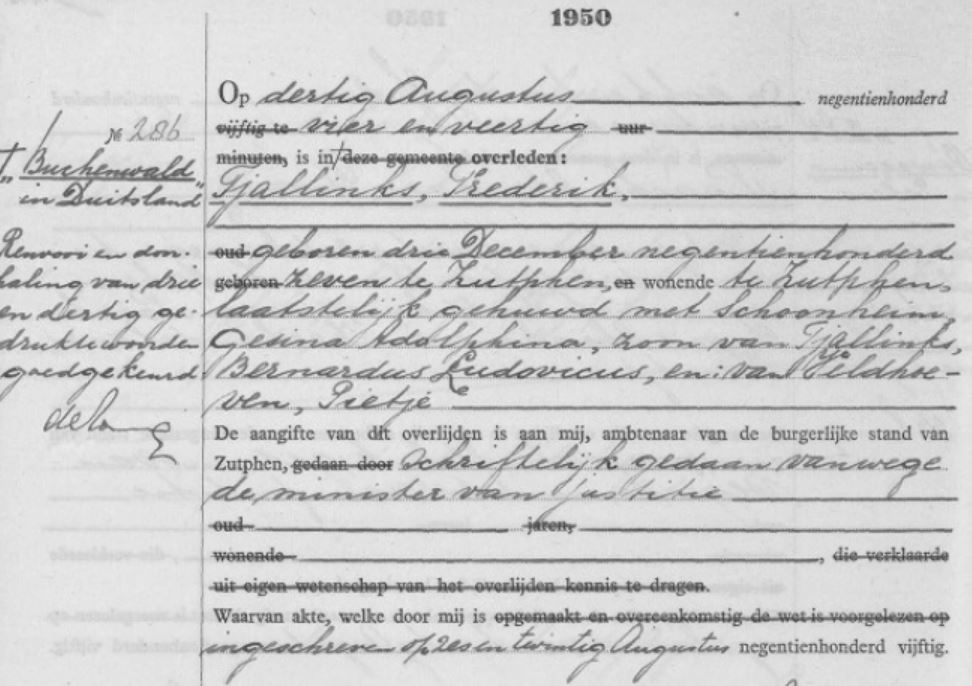 1950
Op dertig Augustus negentienhonderd
vijftig te vier en veertig uur
minuten, is in deze gemeente overleden:
Tjallinks, Frederik,
oud geboren drie December negentienhonderd
geboren zeven te Zutphen, en wonende te Zutphen,
laatstelijk gehuwd met Schoonheim,
Gesina Adolphina, zoon van Tjallinks,
Bernardus Ludovicus, en: van Veldhoe-
ven, Pietje
De aangifte van dit overlijden is aan mij, ambtenaar van de burgerlijke stand van
Zutphen, gedaan door schriftelijk gedaan vanwege
de minister van justitie
oud jaren,
wonende , die verklaarde
uit eigen wetenschap van het overlijden kennis te dragen.
Waarvan akte, welke door mij is opgemaakt en overeenkomstig de wet is voorgelezen op
ingeschreven op zes en twintig Augustus negentienhonderd vijftig.
№ 286
"Buchenwald"
in Duitsland"
Renvooi en door-
haling van drie
en dertig ge-
drukte woorden
goedgekeurd